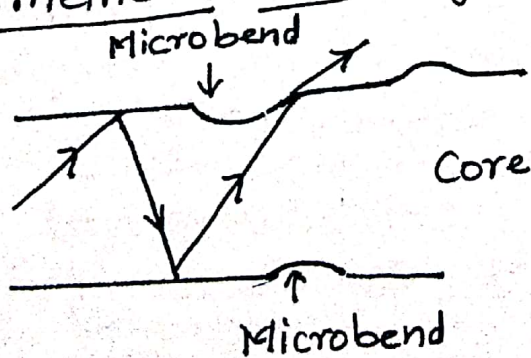 Microbend
Core
Microbend